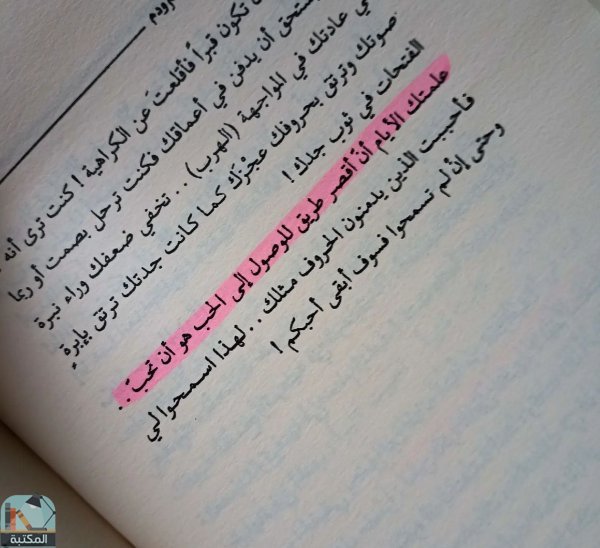 ـرودم
ن تكون قبراً فأقلعتَ عن الكراهية ! كنت ترى أنه
ستحق أن يدفن في أعماقك فكنت ترحل بصمت أو ربما
ي عادتك في المواجهة (الهرب) .. تخفي ضعفك وراء نبرة
صوتك وترتق بحروفك عجْزَك كما كانت جدتك ترتق بإبرةٍ
الفتحات في ثوب جدك !
علمتك الأيام أنّ أقصر طريق للوصول إلى الحب هو أن تحبّ ..
فأحببت الذين يدمنون الحروف مثلك .. لهذا اسمحوا لي
وحتى إنْ لم تسمحوا فسوف أبقى أحبكم !
المكتبة